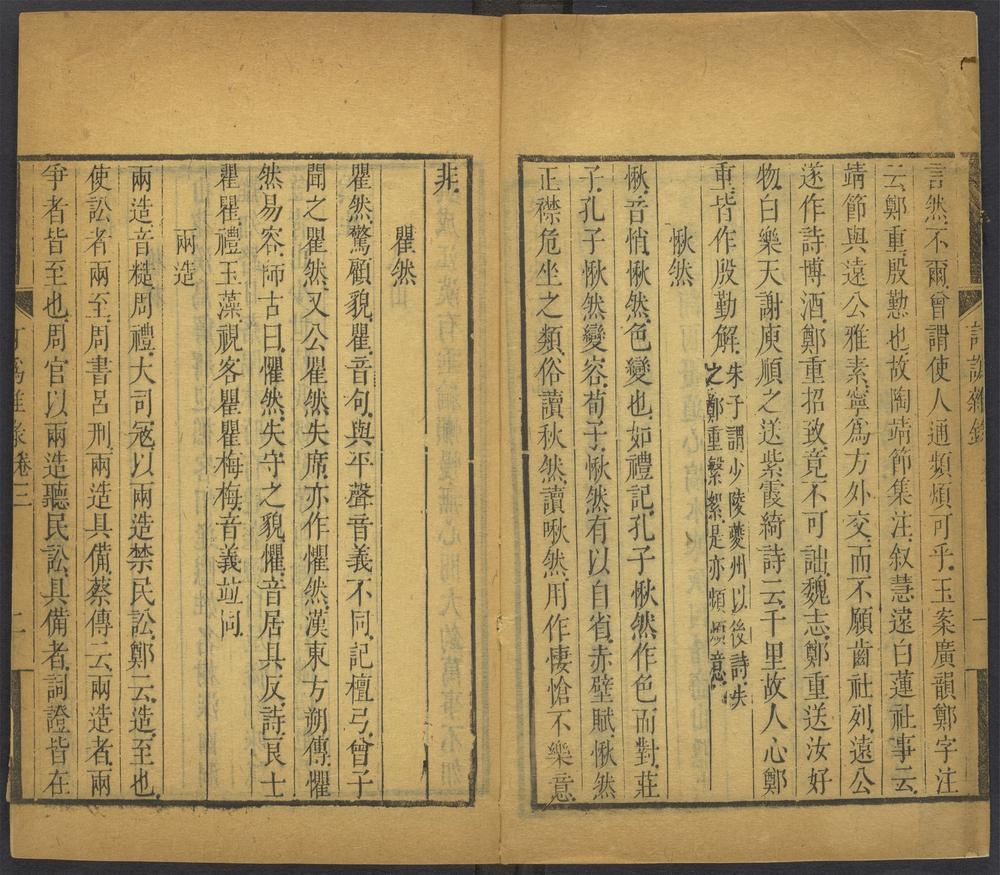 言然不爾曾謂使人通頻煩可乎玉案廣韻鄭字注
云鄭重殷懃也故陶靖節集注叙慧遠白蓮社事云
靖節與遠公雅素寧爲方外交而不願齒社列遠公
遂作詩博酒鄭重招致竟不可詘魏志鄭重送汝好
物白樂天謝庾順之送紫霞綺詩云千里故人心鄭
重皆作殷勤解朱子謂少陵夔州以後詩失
之鄭重繁絮是亦頻煩意
愀然
愀音悄愀然色變也如禮記孔子愀然作色而對莊
子孔子愀然變容荀子愀然有以自省赤壁賦愀然
正襟危坐之類俗讀秋然讀啾然用作悽愴不樂意
非
瞿然
瞿然驚顧貌瞿音句與平聲音義不同記檀弓曾子
聞之瞿然又公瞿然失席亦作懼然漢東方朔傳懼
然易容師古曰懼然失守之貌懼音居具反詩良士
瞿瞿禮玉藻視客瞿瞿梅梅音義竝同
兩造
兩造音糙周禮大司冦以兩造禁民訟鄭云造至也
使訟者兩至周書呂刑兩造具備蔡傳云兩造者兩
爭者皆至也周官以兩造聽民訟具備者詞證皆在
卷三
二